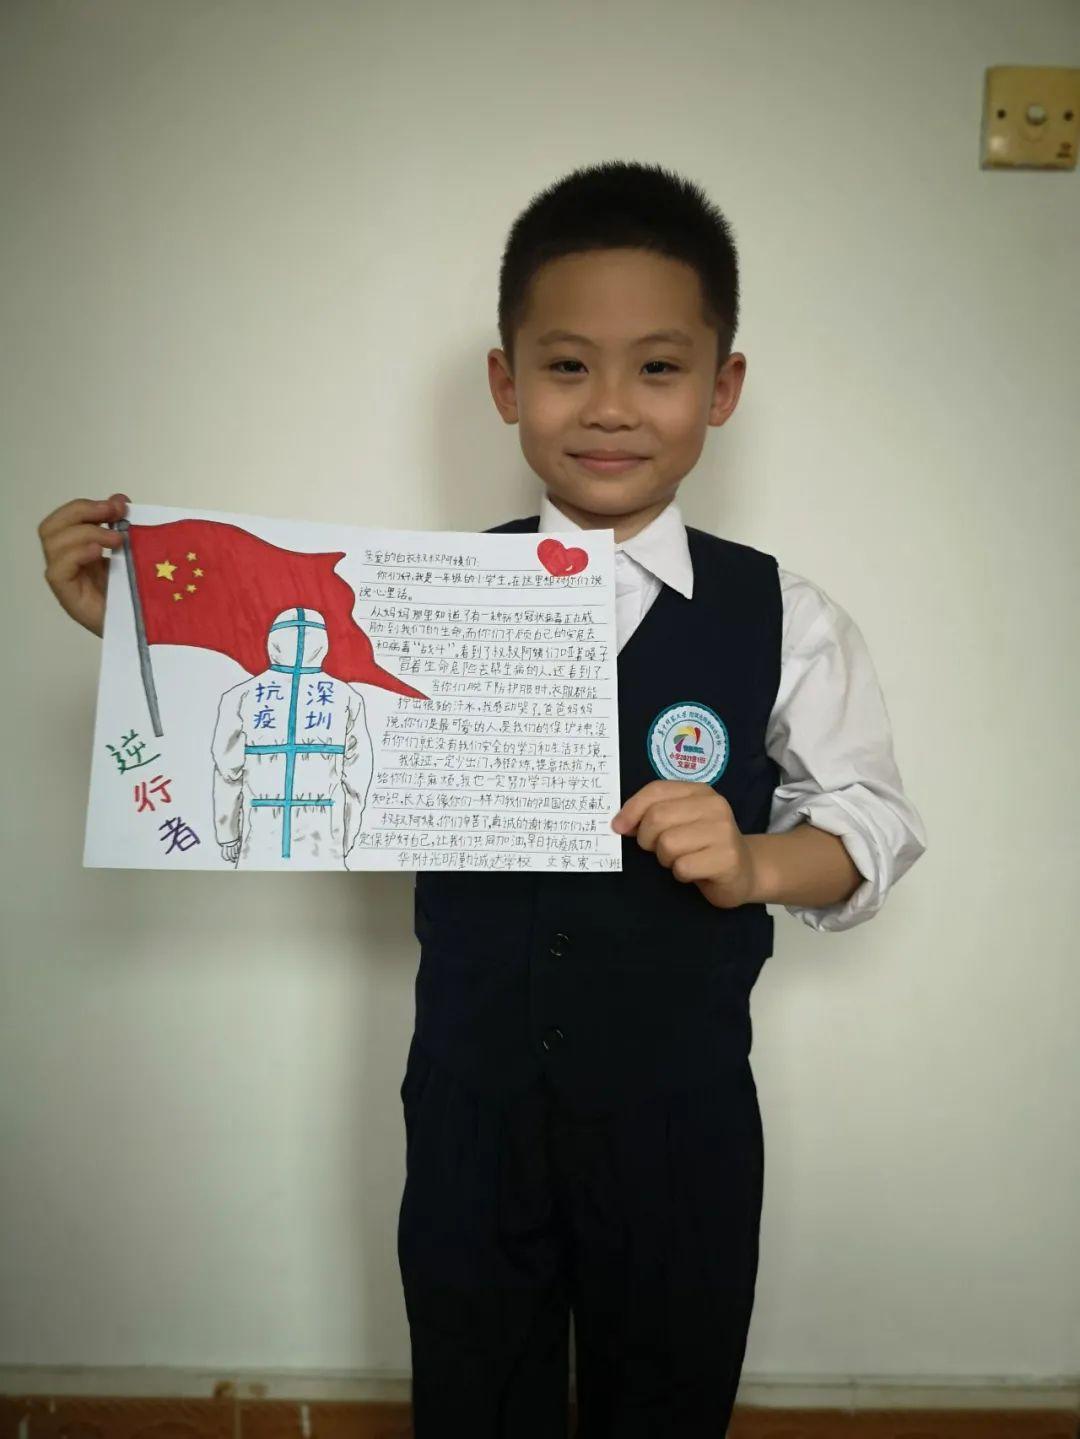 亲爱的白衣叔叔阿姨们:
你们好,我是一年级的小学生。在这里想对你们说
说心里话。
从妈妈那里知道了有一种新型冠状病毒正在威
胁到我们的生命,而你们不顾自己的安危去
和病毒“战斗”。看到了叔叔阿姨们哑着嗓子
冒着生命危险去帮生病的人。还看到了
当你们脱下防护服时,衣服都能
拧出很多的汗水,我感动哭了。爸爸妈妈
说,你们是最可爱的人,是我们的保护神,没
有你们就没有我们安全的学习和生活环境。
我保证,一定少出门,多锻炼,提高抵抗力,不
给你们添麻烦。我也一定努力学习科学文化
知识,长大后像你们一样为我们的祖国做贡献。
叔叔阿姨,你们辛苦了,真诚的谢谢你们,请一
定保护好自己,让我们共同加油,早日抗疫成功!
华附光明勤诚达学校 文家 一(1)班
抗疫
深圳
逆行者
小学2021级1班
文家